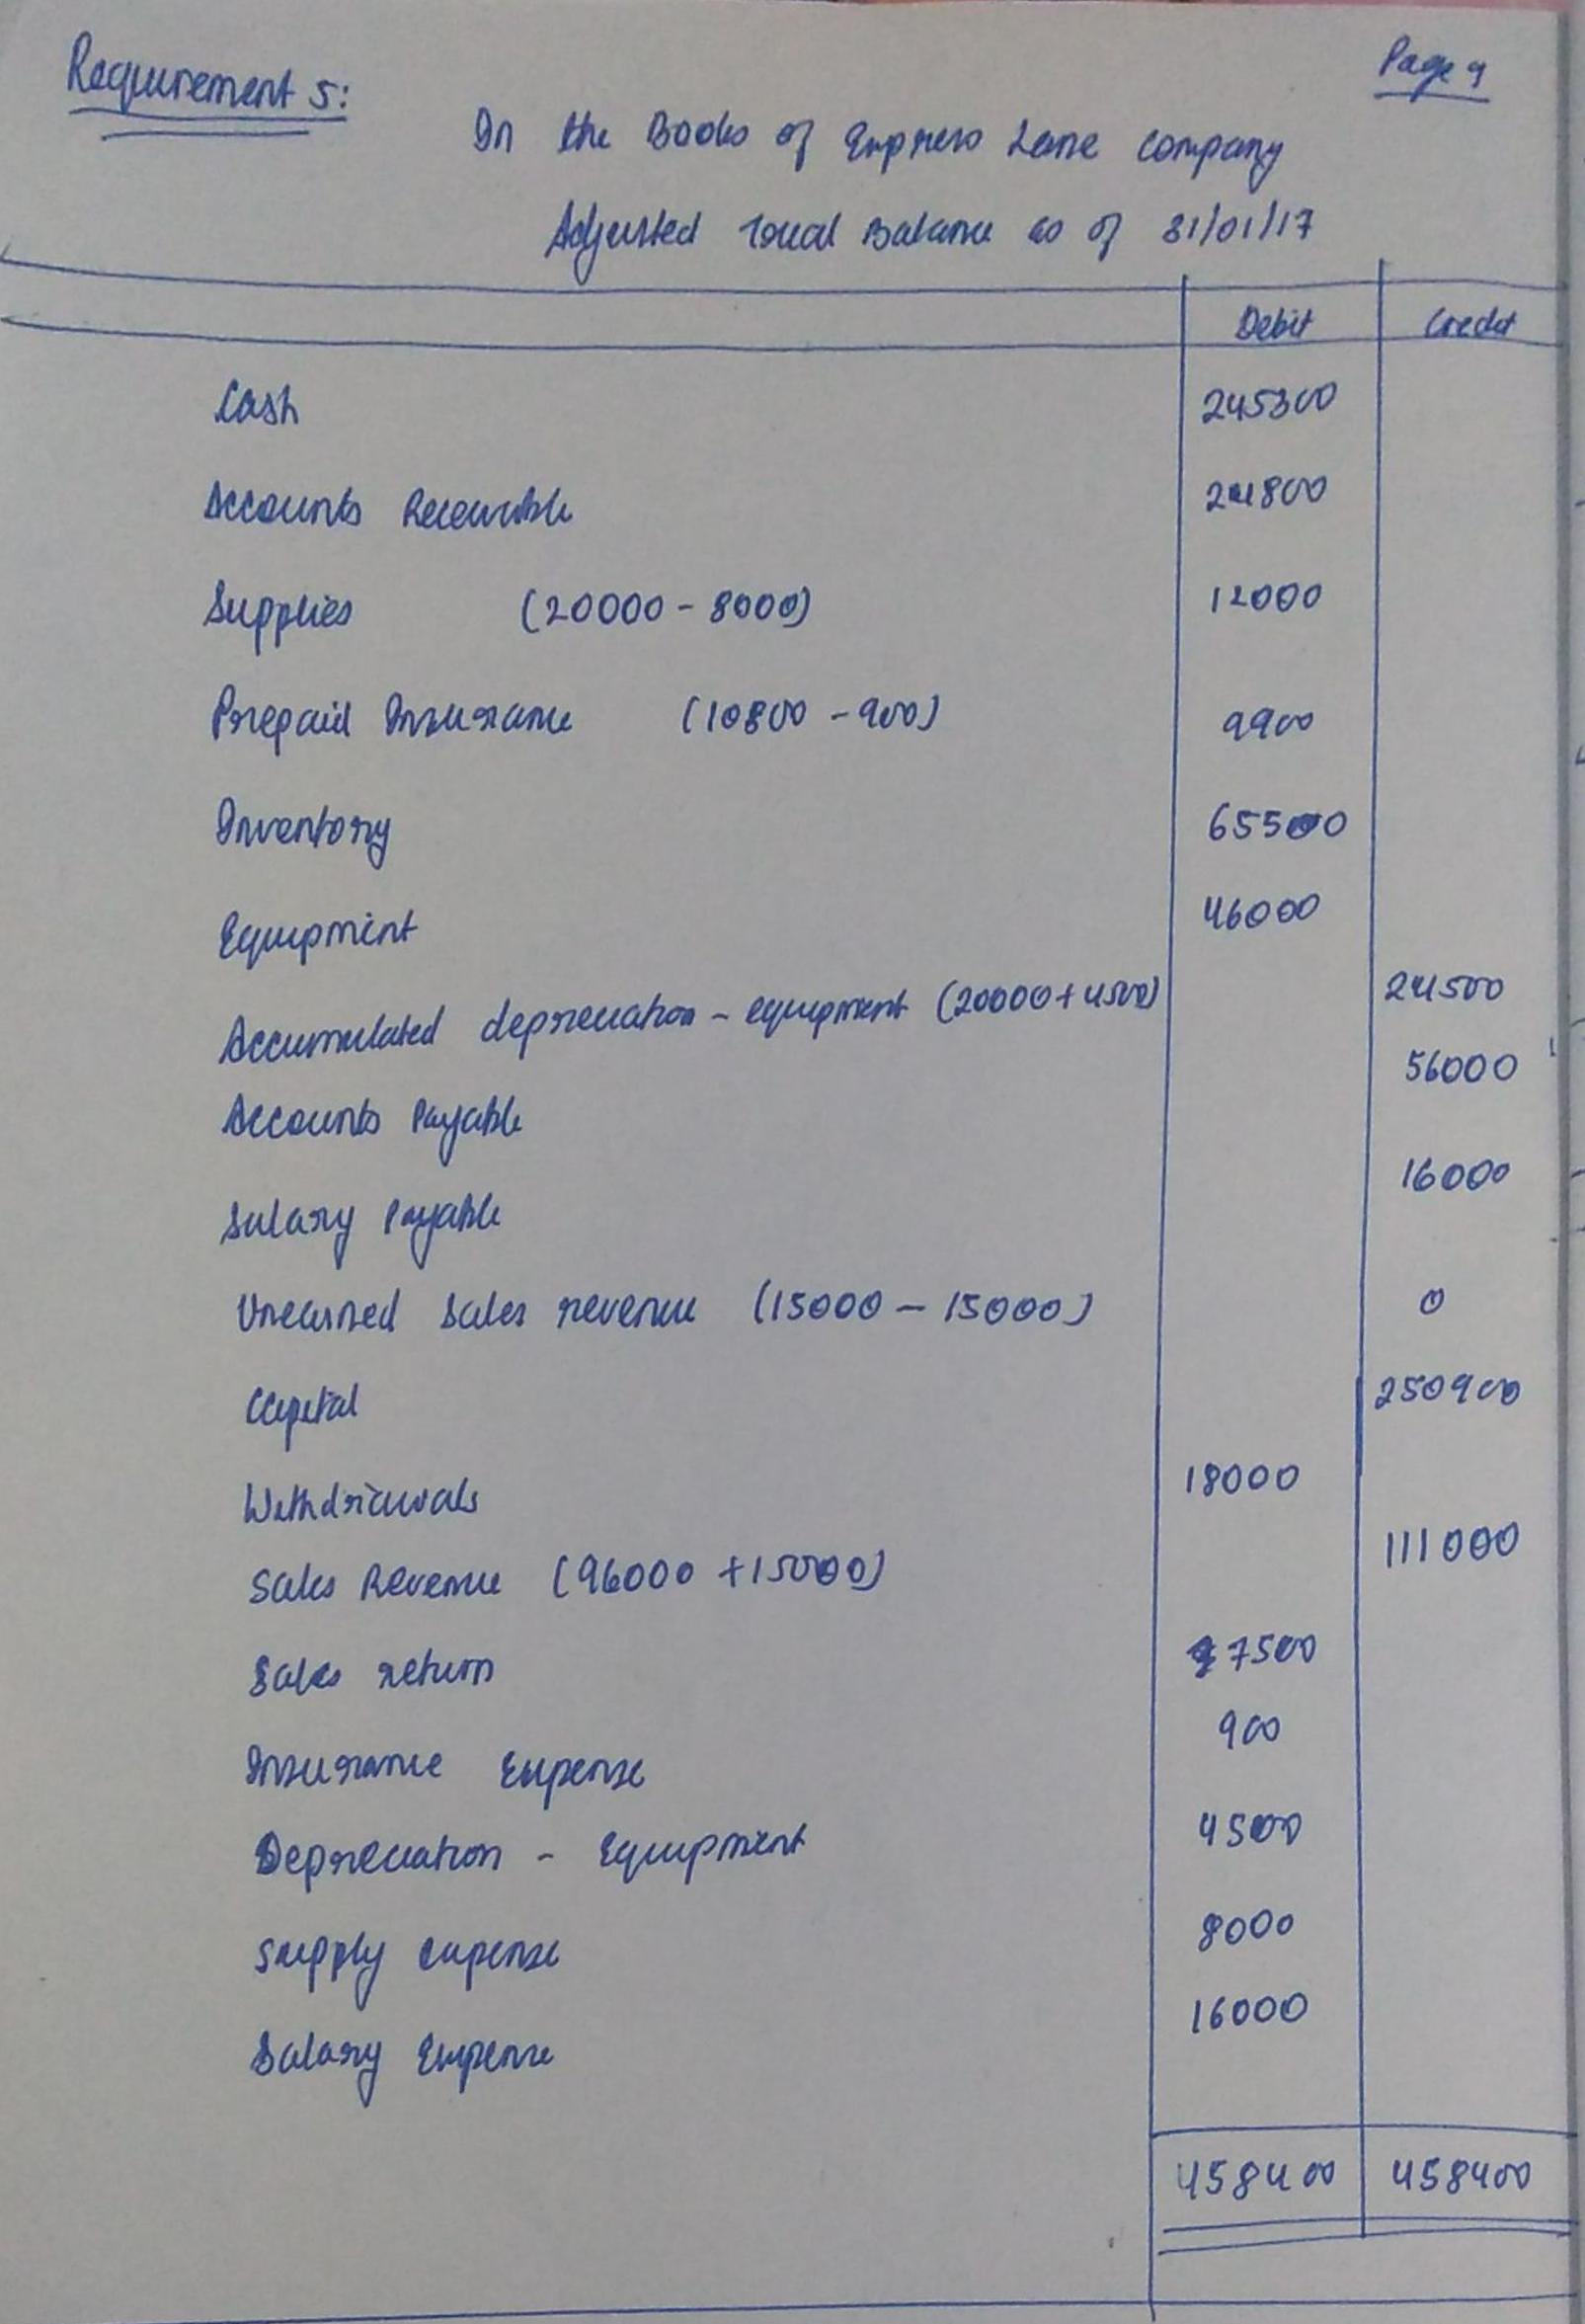 Requirement 5:
Page 9
In the Books of Express Lane company
Adjusted Trial Balance as of 31/01/17
Debit Credit
Cash 245300
Accounts Receivable 24800
Supplies (20000 - 8000) 12000
Prepaid Insurance (10800 - 900) 9900
Inventory 65500
Equipment 46000
Accumulated depreciation - equipment (20000 + 4500) 24500
Accounts Payable 56000
Salary Payable 16000
Unearned Sales revenue (15000 - 15000) 0
Capital 250900
Withdrawals 18000
Sales Revenue (96000 + 15000) 111000
Sales return 7500
Insurance Expense 900
Depreciation - Equipment 4500
Supply expense 8000
Salary Expense 16000
458400 458400